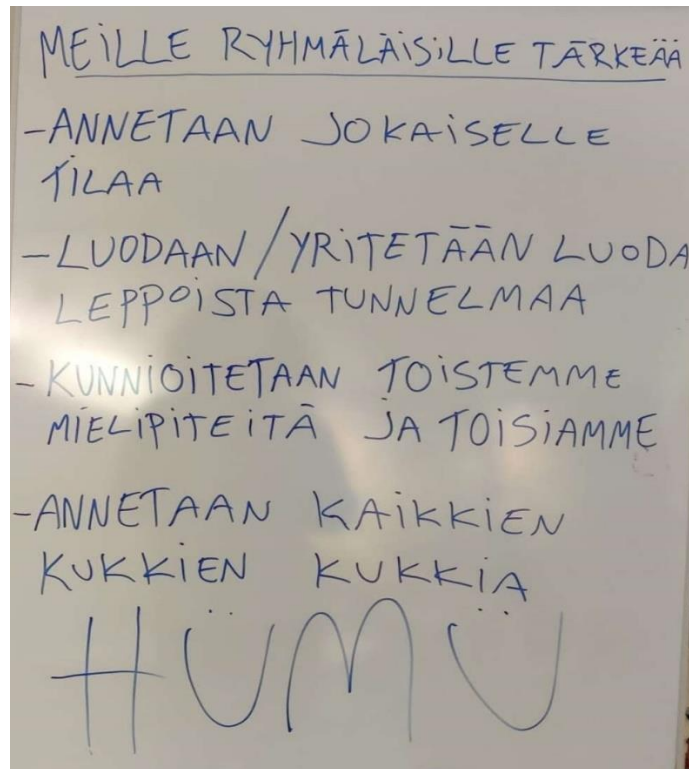 MEILLE RYHMÄLÄISILLE TÄRKEÄÄ
-ANNETAAN JOKAISELLE
TILAA
-LUODAAN/YRITETÄÄN LUODA
LEPPOISTA TUNNELMAA
-KUNNIOITETAAN TOISTEMME
MIELIPITEITÄ JA TOISIAMME
-ANNETAAN KAIKKIEN
KUKKIEN KUKKIA
HÜMÜ